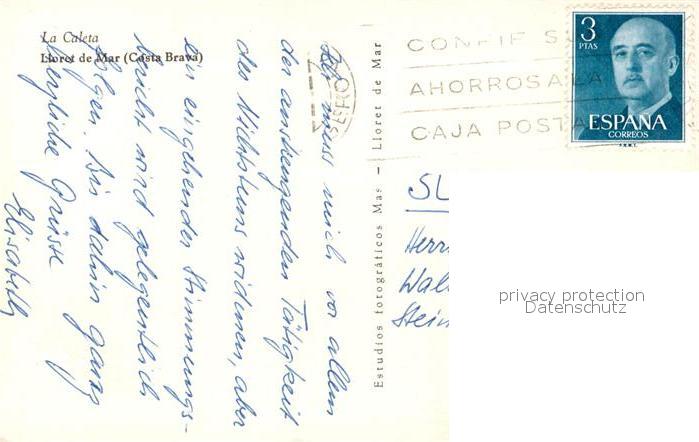 La Caleta
Lloret de Mar (Costa Brava)
Ich muss mich vor allem
der anstrengenden Tätigkeit
des Nichtstuns widmen, aber
ein eingehender Stimmungs-
bericht wird gelegentlich
folgen. Bis dahin ganz
herzliche Grüsse
Elisabeth
Estudios fotográficos Mas - Lloret de Mar
CONFIE S
AHORROS A LA
CAJA POSTA
3
PTAS
ESPAÑA
CORREOS
F.N.M.T.
SL
Herrn
Wal
Stein
privacy protection
Datenschutz